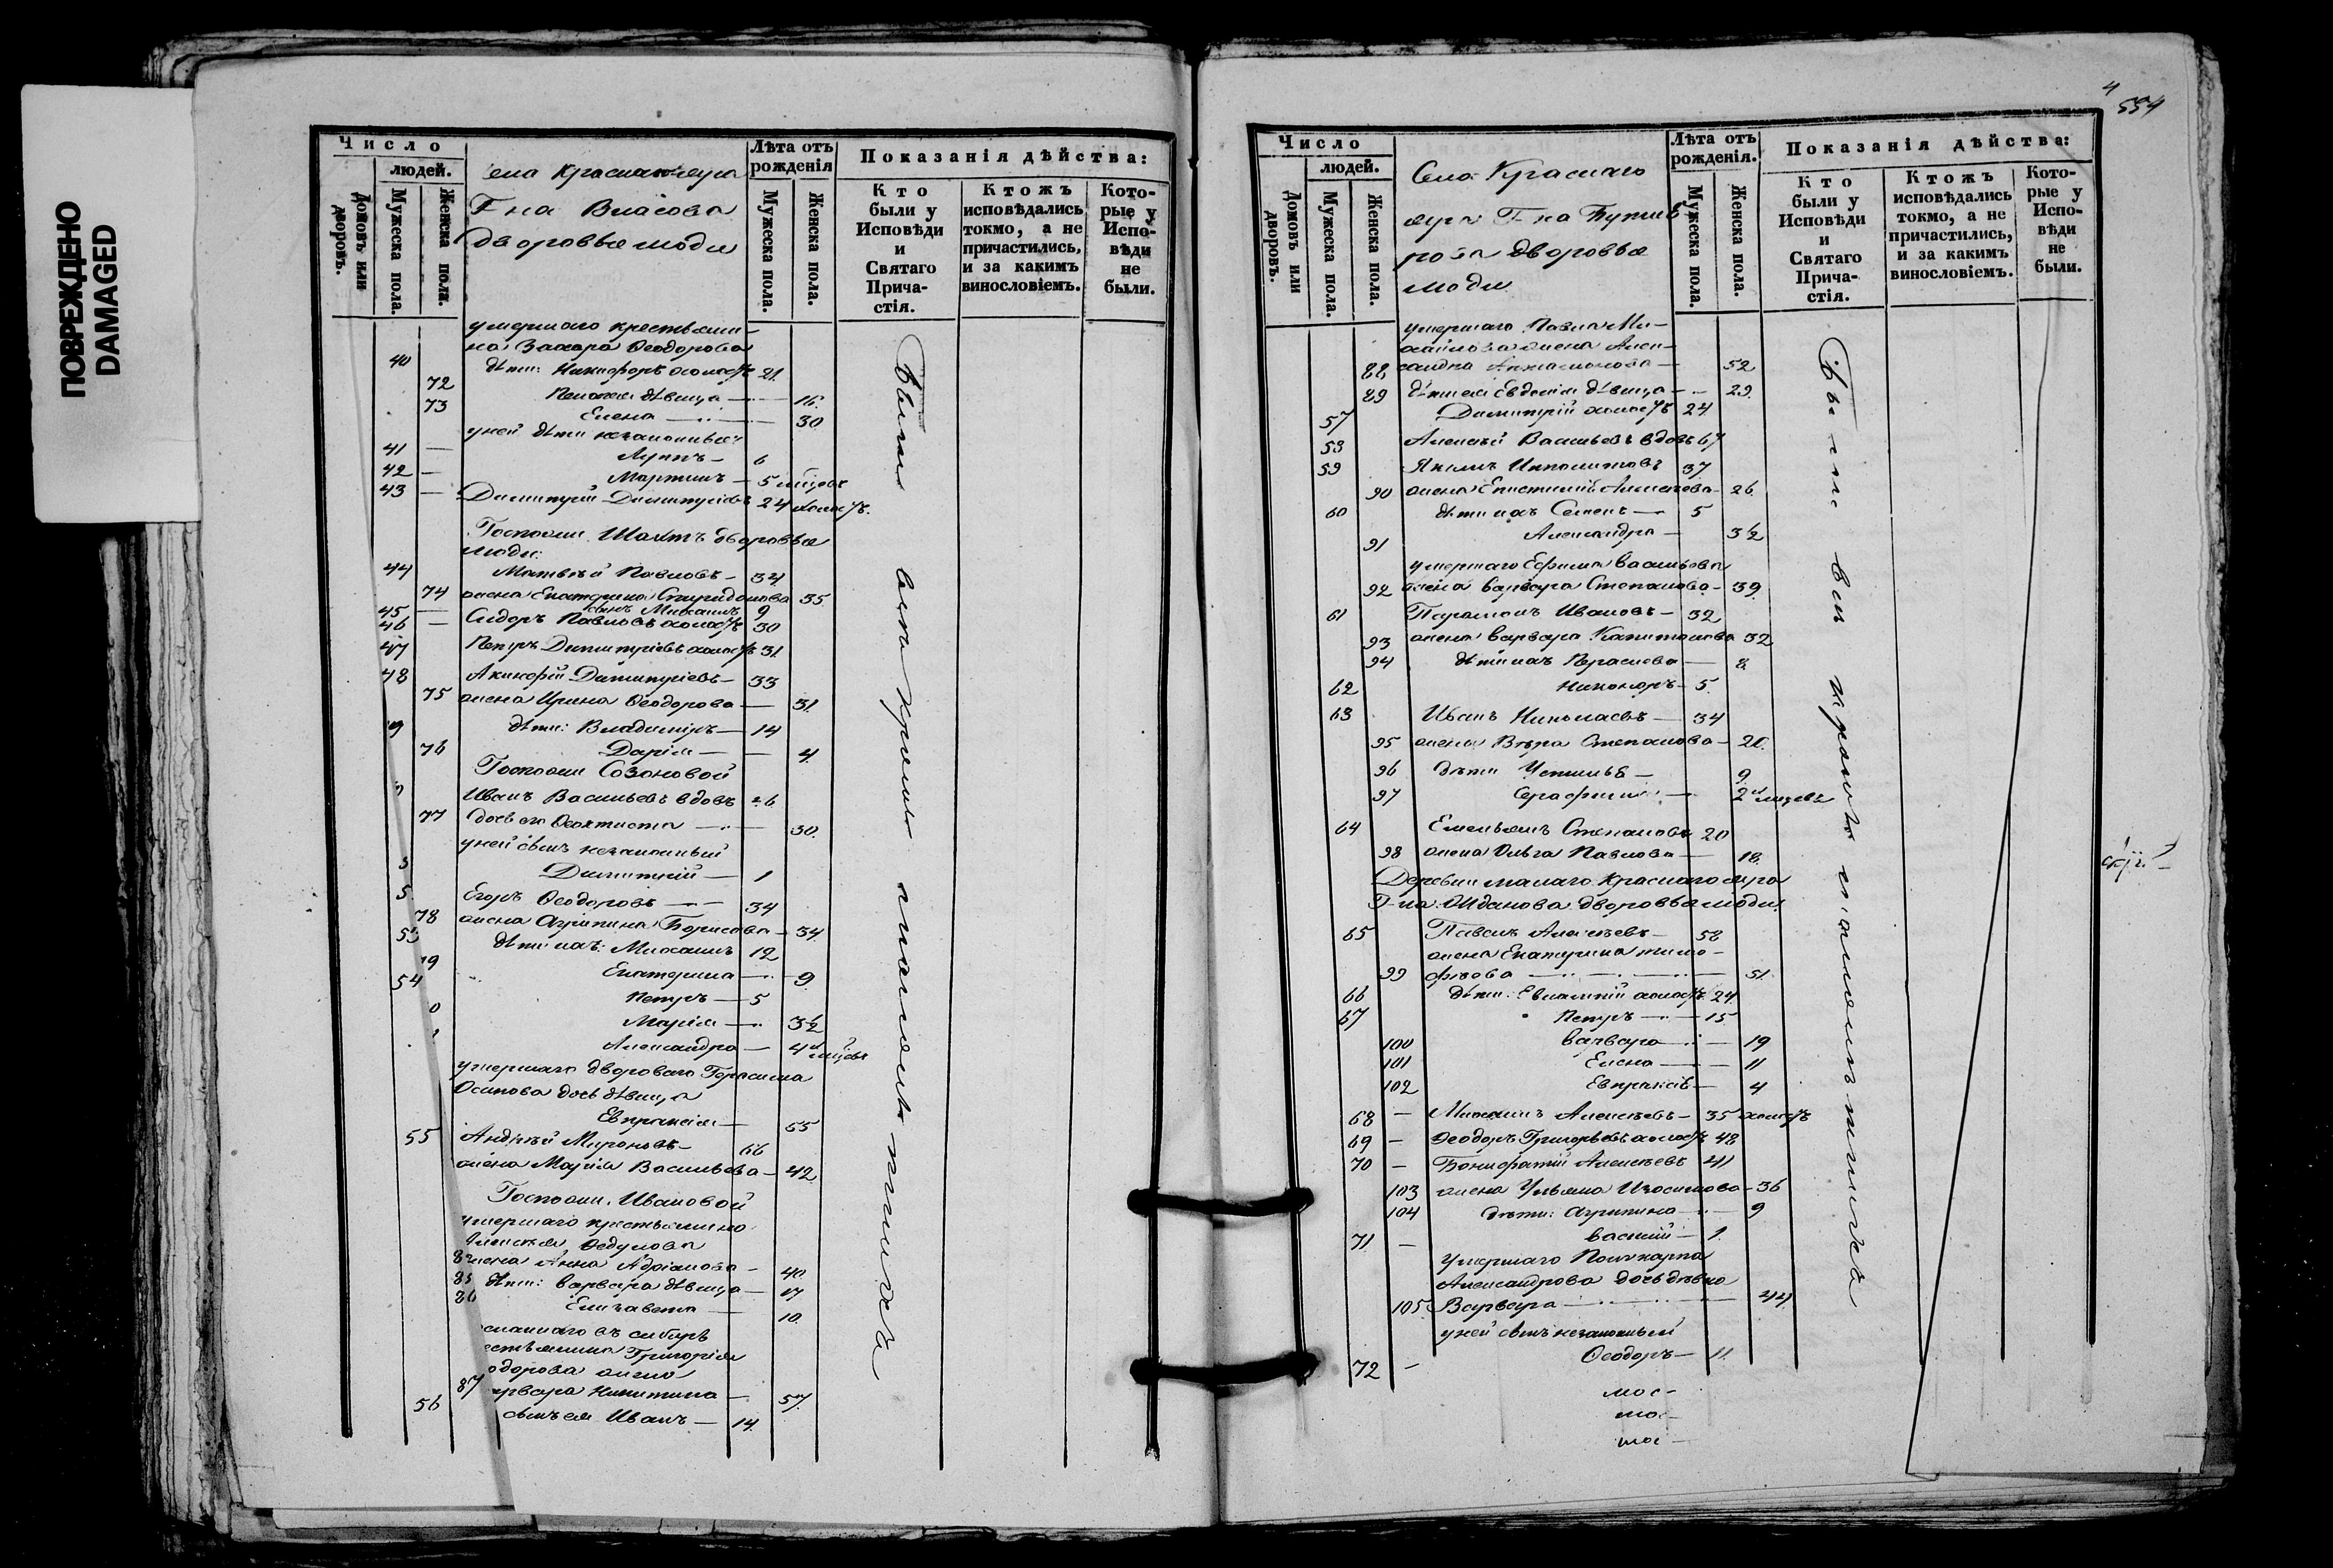 ПОВРЕЖДЕНО
DAMAGED
Число
людей.
Домовъ или дворовъ.
Мужеска пола.
Женска пола.
села Краснаго яра
Г на Власова
дворовые люди
Лѣта отъ рожденія
Мужеска пола.
Женска пола.
Показанія дѣйства:
Кто были у Исповѣди и Святаго Прича- стія.
Ктожъ исповѣдались токмо, а не причастились, и за какимъ винословіемъ.
Кото- рые у Испо- вѣди не были.
умершаго крестьяни-
на Захара Ѳеодорова
40 дѣти: Никифоръ холостъ 21.
72 Пелагея дѣвица — 16.
73 Елена — 30
у ней дѣти незаконные
41 — Луппъ — 6
42 — Мартинъ — 5 мѣсцовъ
43 — Димитрій Димитріевъ 24 холостъ.
Госпожи Шахтъ дворовые
люди:
44 Матвѣй Павловъ — 34
74 жена Екатерина Спиридонова 35
45 — сынъ Михаилъ 9
46 — Сидоръ Павловъ холостъ 30
47 Петръ Димитріевъ холостъ 31
48 Акинфій Димитріевъ — 33
75 жена Ирина Ѳеодорова — 31.
9 дѣти: Владимиръ — 14
76 Дарія — 4.
Госпожи Созоновой
Иванъ Васильевъ вдовъ 26
77 дочь его Ѳеоктиста — 30.
у ней сынъ незаконный
5 Димитрій — 1
5. Егоръ Ѳеодоровъ — 34
78 жена Агрипина Борисова — 34.
53 дѣти ихъ: Михаилъ 12
79 Екатерина — 9.
54 Петръ — 5
0 Марія — 3½
Александра — 4 мѣсцовъ
умершаго двороваго Герасима
Осипова дочь дѣвица
Евпраксія — 65
55 Андрей Мироновъ — 66
жена Марія Васильева — 42.
Госпожи Ивановой
умершаго крестьянина
Алексѣя Ѳедулова
жена Анна Адріанова — 40.
85 дѣти: Варвара дѣвица — 17
86 Елизавета — 10.
сланнаго въ сибирь
естьянина Григорія
одорова жена
87 арвара Никитина — 57.
56 сынъ ея Иванъ — 14.
Были вси кромѣ малолѣтнихъ
4
554
Число
людей.
Домовъ или дворовъ.
Мужеска пола.
Женска пола.
Села Краснаго
яра Г на Бутлѣ
рова дворовые
люди
Лѣта отъ рожденія.
Мужеска пола.
Женска пола.
Показанія дѣйства:
Кто были у Исповѣди и Святаго Прича- стія.
Ктожъ исповѣдались токмо, а не причастились, и за какимъ винословіемъ.
Кото- рые у Испо- вѣди не были.
умершаго Павла Ми-
хайлова жена Алек-
88 сандра — 52
89 дѣти ея Евдокія дѣвица — 29.
57 Димитрій холостъ 24.
58 Алексѣй Васильевъ вдовъ 67
59 Якимъ Ипполитовъ 37
90 жена Епистимія Алексѣева — 26.
60 дѣти ихъ Семенъ — 5
91 Александра — 3½
умершаго Ефима Васильева
92 жена Варвара Степанова — 39.
61 Парамонъ Ивановъ — 32
93 жена Варвара Капитонова 32
94 дѣти ихъ Парасковія — 8.
62 Никаноръ — 5.
63 Иванъ Николаевъ — 34
95 жена Вѣра Степанова — 20.
96 дѣти Устинья — 9.
97 Серафима — 2 мѣсцовъ
64 Емельянъ Степановъ 20
98 жена Ольга Павлова — 18.
Деревни малаго Краснаго яра
Г-на Жданова дворовые люди:
65 Павелъ Алексѣевъ — 58
жена Екатерина Тимо-
99 фѣева — 51.
66 дѣти: Евлампій холостъ 24.
67 Петръ — 15
100 Варвара — 19
101 Елена — 11
102 Евпраксія — 4
68 — Михаилъ Алексѣевъ — 35 холостъ
69 — Ѳеодоръ Григорьевъ холостъ 48
70 — Бонифатій Алексѣевъ 41
103 жена Ульяна Изосимова — 36
104 дѣти: Агрипина — 9
71 — Василій — 1.
Умершаго Поликарпа
Александрова дочь дѣвка
105. Варвара — 44
у ней сынъ незаконный
72 — Ѳеодоръ — 11.
Были вси кромѣ малолѣтнихъ